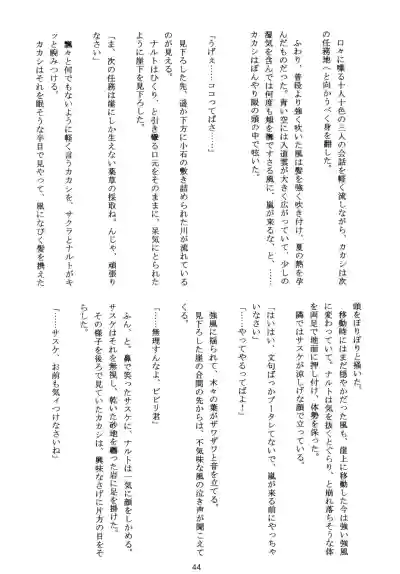 口々に喋る十人十色の三人の会話を軽く流しながら、カカシは次
の任務地へと向かうべく身を翻した。
ふわり、普段より強く吹いた風は髪を強く吹き付け、夏の熱を孕
んだものだった。青い空には入道雲が大きく広がっていて、少しの
湿気を含んでは何度も頬を撫でさする風に、嵐が来るな、と、……
カカシはぼんやり眼の頭の中で呟いた。
「うげぇ……ココってばさ……」
見下ろした先、遥か下方に小石の敷き詰められた川が流れている
のが見える。
ナルトはひくり、と引き攣る口元をそのままに、呆気にとられた
ように崖を見下ろした。
「ま、次の任務は崖にしか生えない薬草の採取ね。んじゃ、頑張り
なさい」
飄々と何でもないように軽く言うカカシを、サクラとナルトがキ
ッと睨みつける。
カカシはそれを眠そうな半目で見やって、風になびく髪を携えた
頭をぽりぽりと掻いた。
移動時にはまだ穏やかだった風も、崖上に移動した今は強い強風
に変わっていて、ナルトは気を抜くとぐらり、と崩れ落ちそうな体
を両足で地面に押し付け、体勢を保った。
隣ではサスケが涼しげな顔で立っている。
「はいはい、文句ばっかブータレてないで、嵐が来る前にやっちゃ
いなさい」
「……やってやるってばよ！」
強風に揺られて、木々の葉がザワザワと音を立てる。
見下ろした崖の合間の先からは、不気味な風の泣き声が聞こえて
くる。
「……無理すんなよ、ビビリ君」
ふん、と、鼻で笑ったサスケに、ナルトは一気に顔をしかめる。
サスケはそれを無視し、乾いた砂地を纏った岩に足を掛けた。
その様子を後ろで見ていたカカシは、興味なさげに片方の目をそ
らした。
「……サスケ、お前も気ィつけなさいね」
44